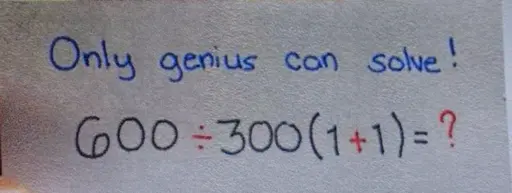 Only genius can solve!
600÷300(1+1)=?